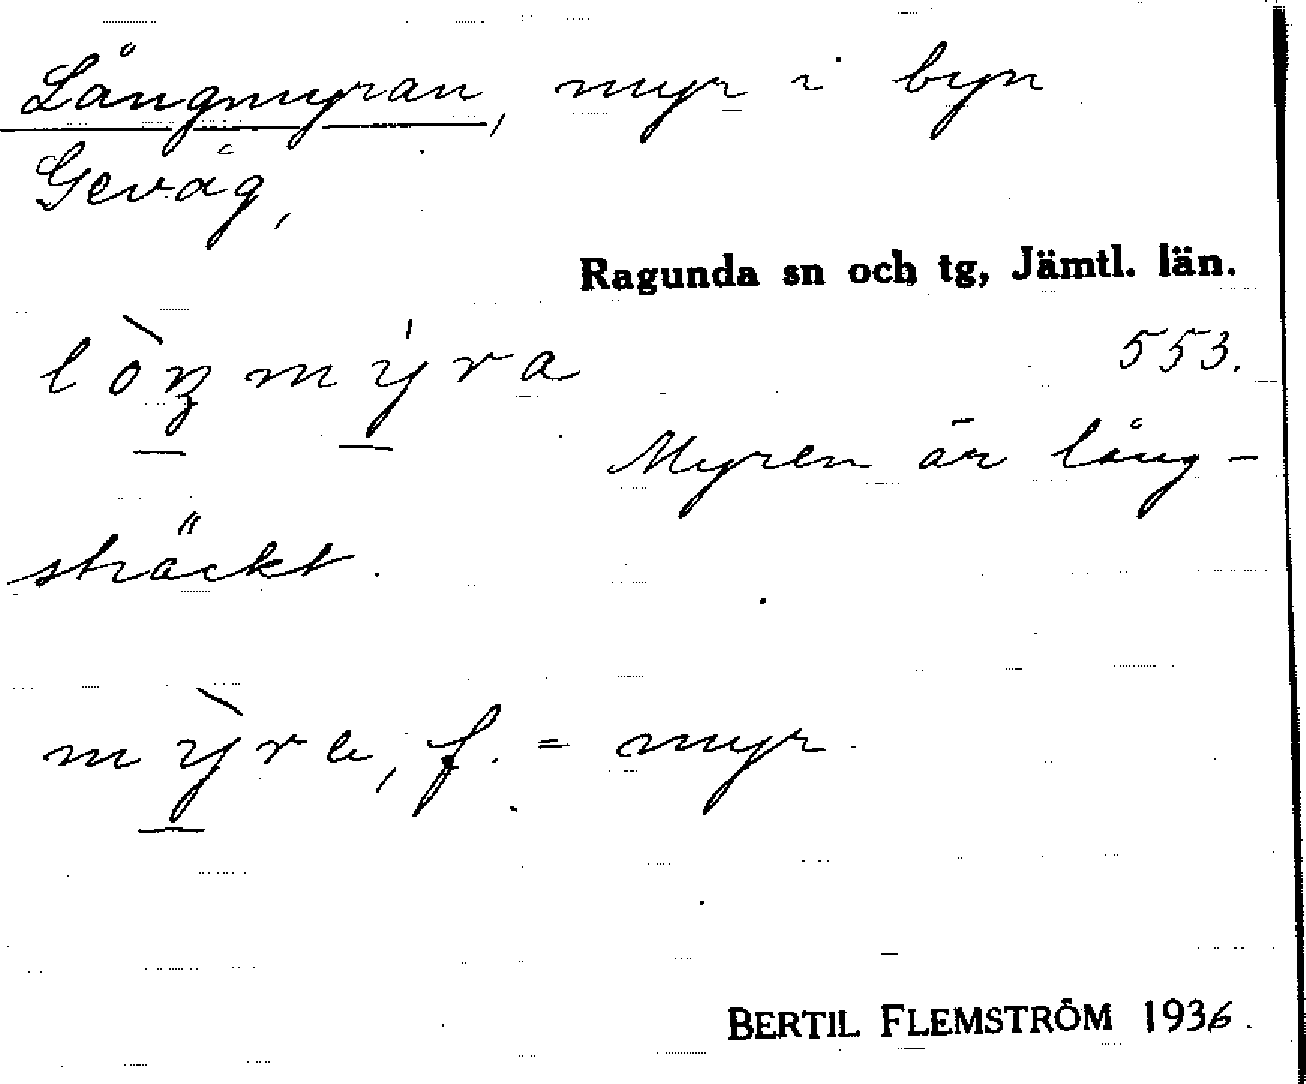 Långmyran, myr i byn
Gevåg,
Ragunda sn och tg, Jämtl. län.
lòŋmýra
553.
Myren är lång-
sträckt.
mỳra, f. = myr
BERTIL FLEMSTRÖM 1936.